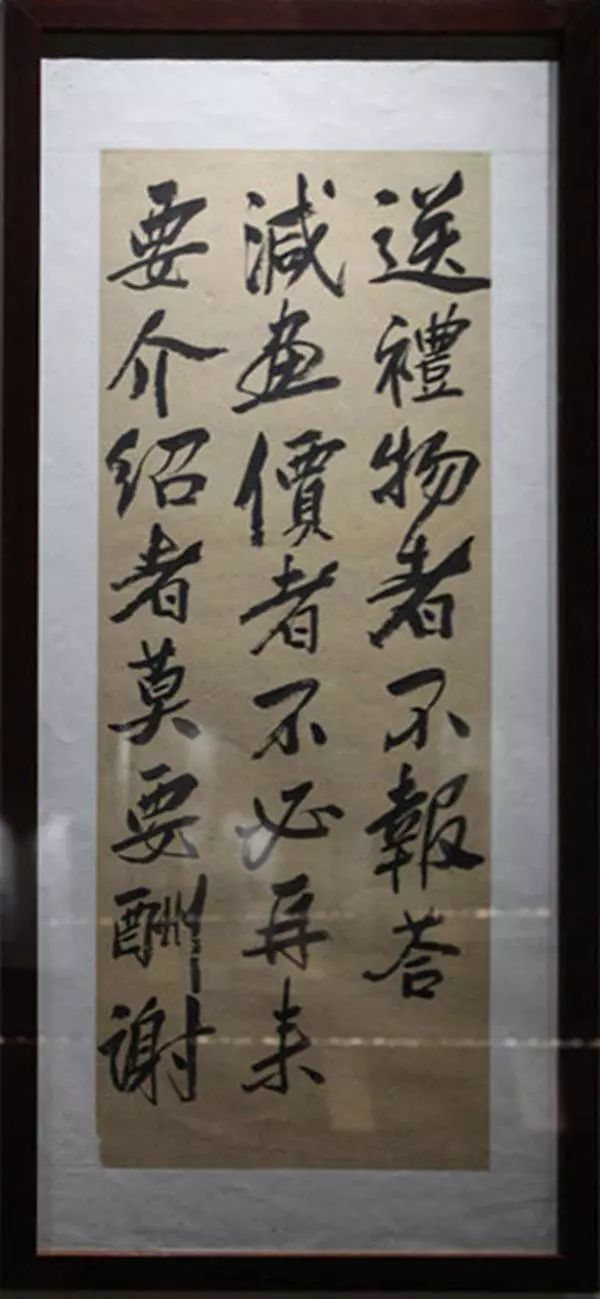 送禮物者不報荅
減畫價者不必再來
要介紹者莫要酬謝